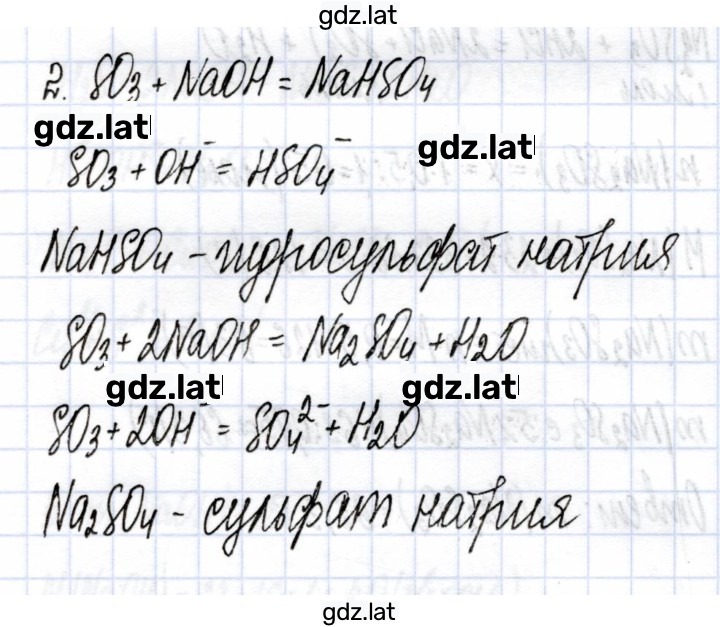 gdz.lat
2. SO₃ + NaOH = NaHSO₄
gdz.lat
gdz.lat
SO₃ + OH⁻ = HSO₄⁻
NaHSO₄ - гидросульфат натрия
SO₃ + 2NaOH = Na₂SO₄ + H₂O
gdz.lat
gdz.lat
SO₃ + 2OH⁻ = SO₄²⁻ + H₂O
Na₂SO₄ - сульфат натрия
gdz.lat